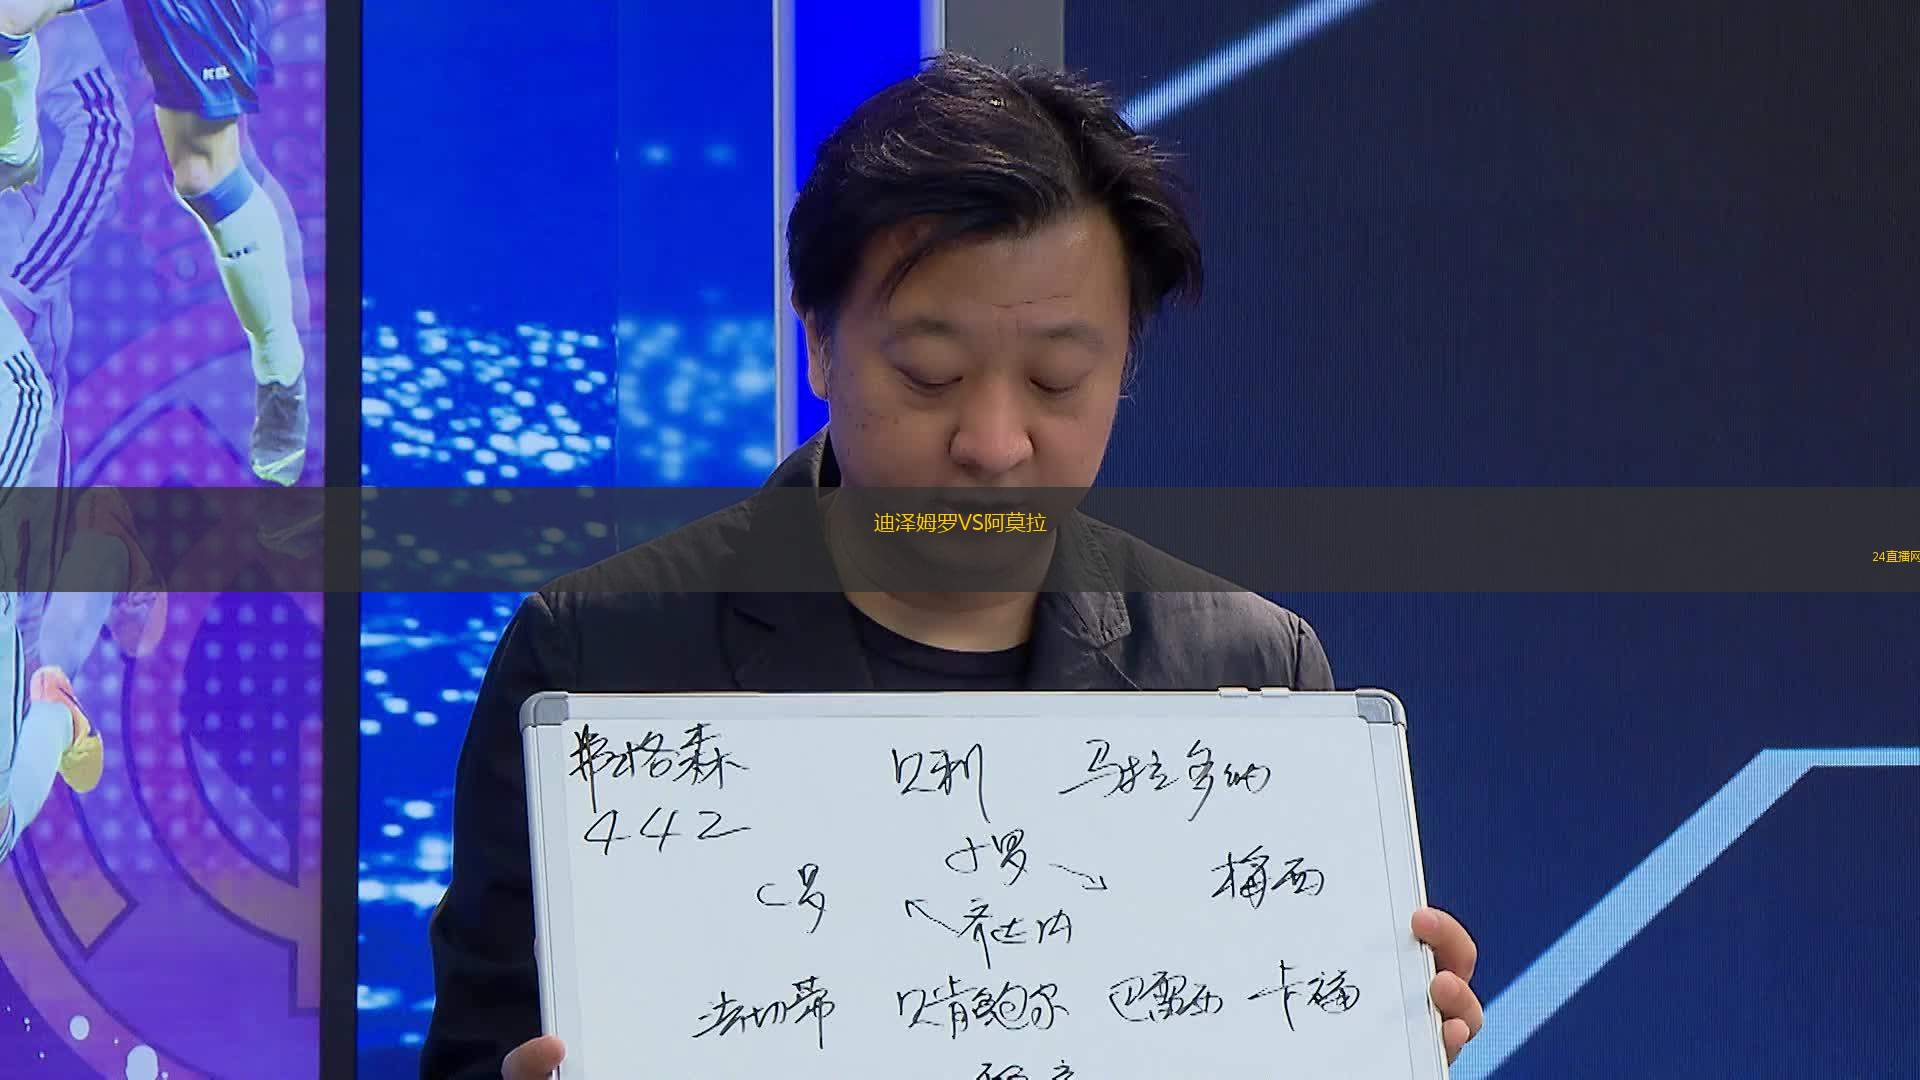 KB
迪泽姆罗VS阿莫拉
24直播网
弗格森
贝利 马拉多纳
442
小罗
C罗 梅西
齐达内
法切蒂 贝肯鲍尔 巴雷西 卡福